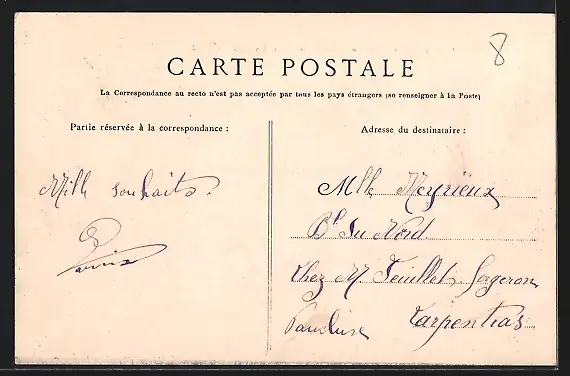 8
CARTE POSTALE
La Correspondance au recto n'est pas acceptée par tous les pays étrangers (se renseigner à la Poste)
Partie réservée à la correspondance :
Adresse du destinataire :
Mille souhaits.
Mlle Meyrieux
Bd du Nord
Chez M. Feuillet
Carpentras
Vaucluse